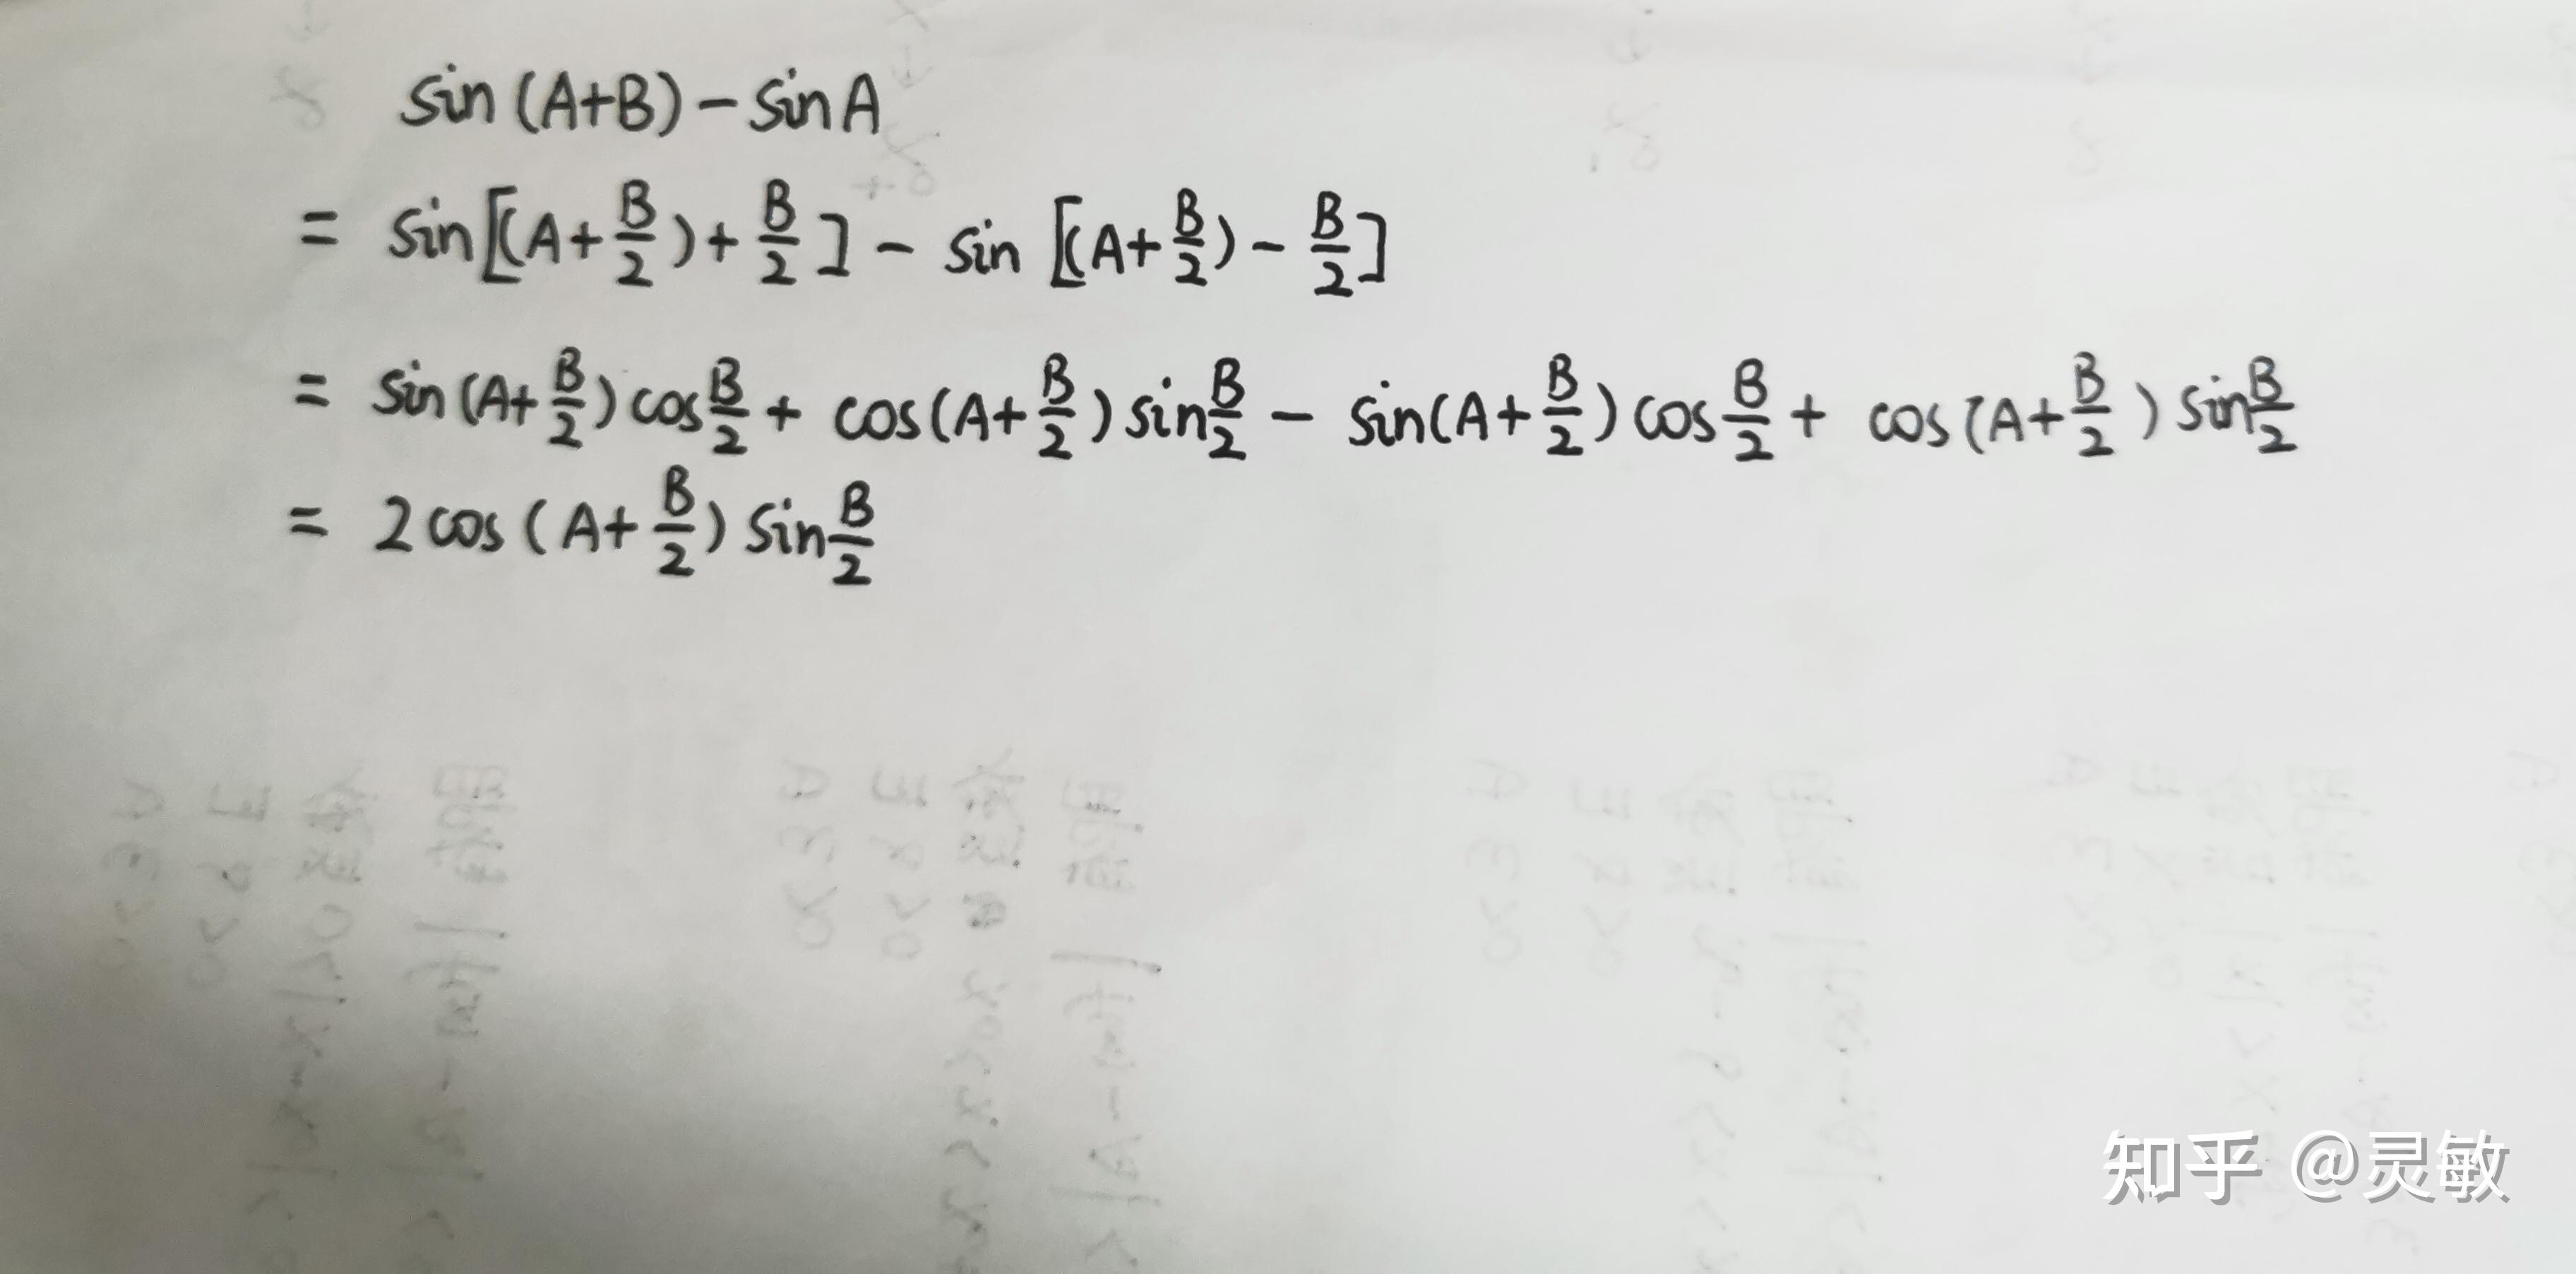 sin(A+B)-sinA
= sin[(A+B/2)+B/2]-sin[(A+B/2)-B/2]
= sin(A+B/2)cosB/2+cos(A+B/2)sinB/2-sin(A+B/2)cosB/2+cos(A+B/2)sinB/2
= 2cos(A+B/2)sinB/2
知乎 @灵敏